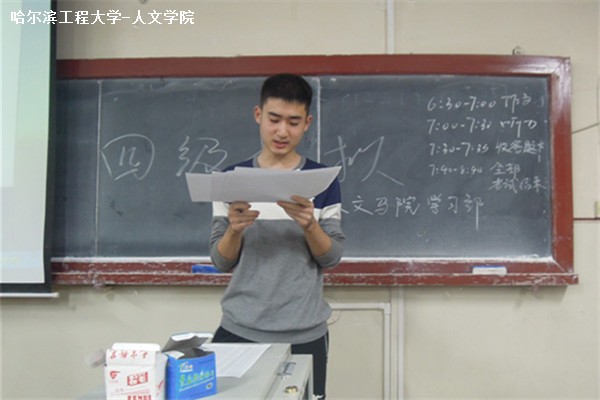 哈尔滨工程大学-人文学院
四级 拟
6:30-7:00
7:00-7:30 听力
7:30-7:35 收答题卡
7:40-8:40 全部
考试结束
人文马院 学习部